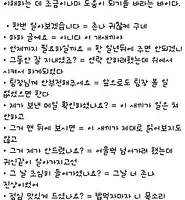 이해하는 데 조금이나마 도움이 되기를 바라는 바이다.
• 한번 알아보겠습니다 = 존나 귀찮게 구네
• 하하 글쎄요 = 아니다 이 개새끼야
• 언제까지 필요하실까요 = 한 일년뒤에 주면 안되겠니
• 그동안 잘 지내셨죠? = 연락 안하려했는데 위에서
시켜서 하게되었다
• 팀장님께 안부전해주세요 = 앞으로도 팀장 볼 일
없었으면 한다
• 제가 보낸 메일 확인하셨나요? = 이 새끼가 일은 쳐
안하고
• 그거 맨 뒤에 보시면 = 이 새끼가 제대로 읽어보지도
않고
• 그거 제가 안드렸나요? = 어물쩍 넘어가려 했는데
귀신같이 알아가지고선
• 그 날 조심히 들어가셨나요? = 그날 너 존나
진상이었어
• 점심 맛있게 드셨나요? = 밥먹자마자 니 목소리